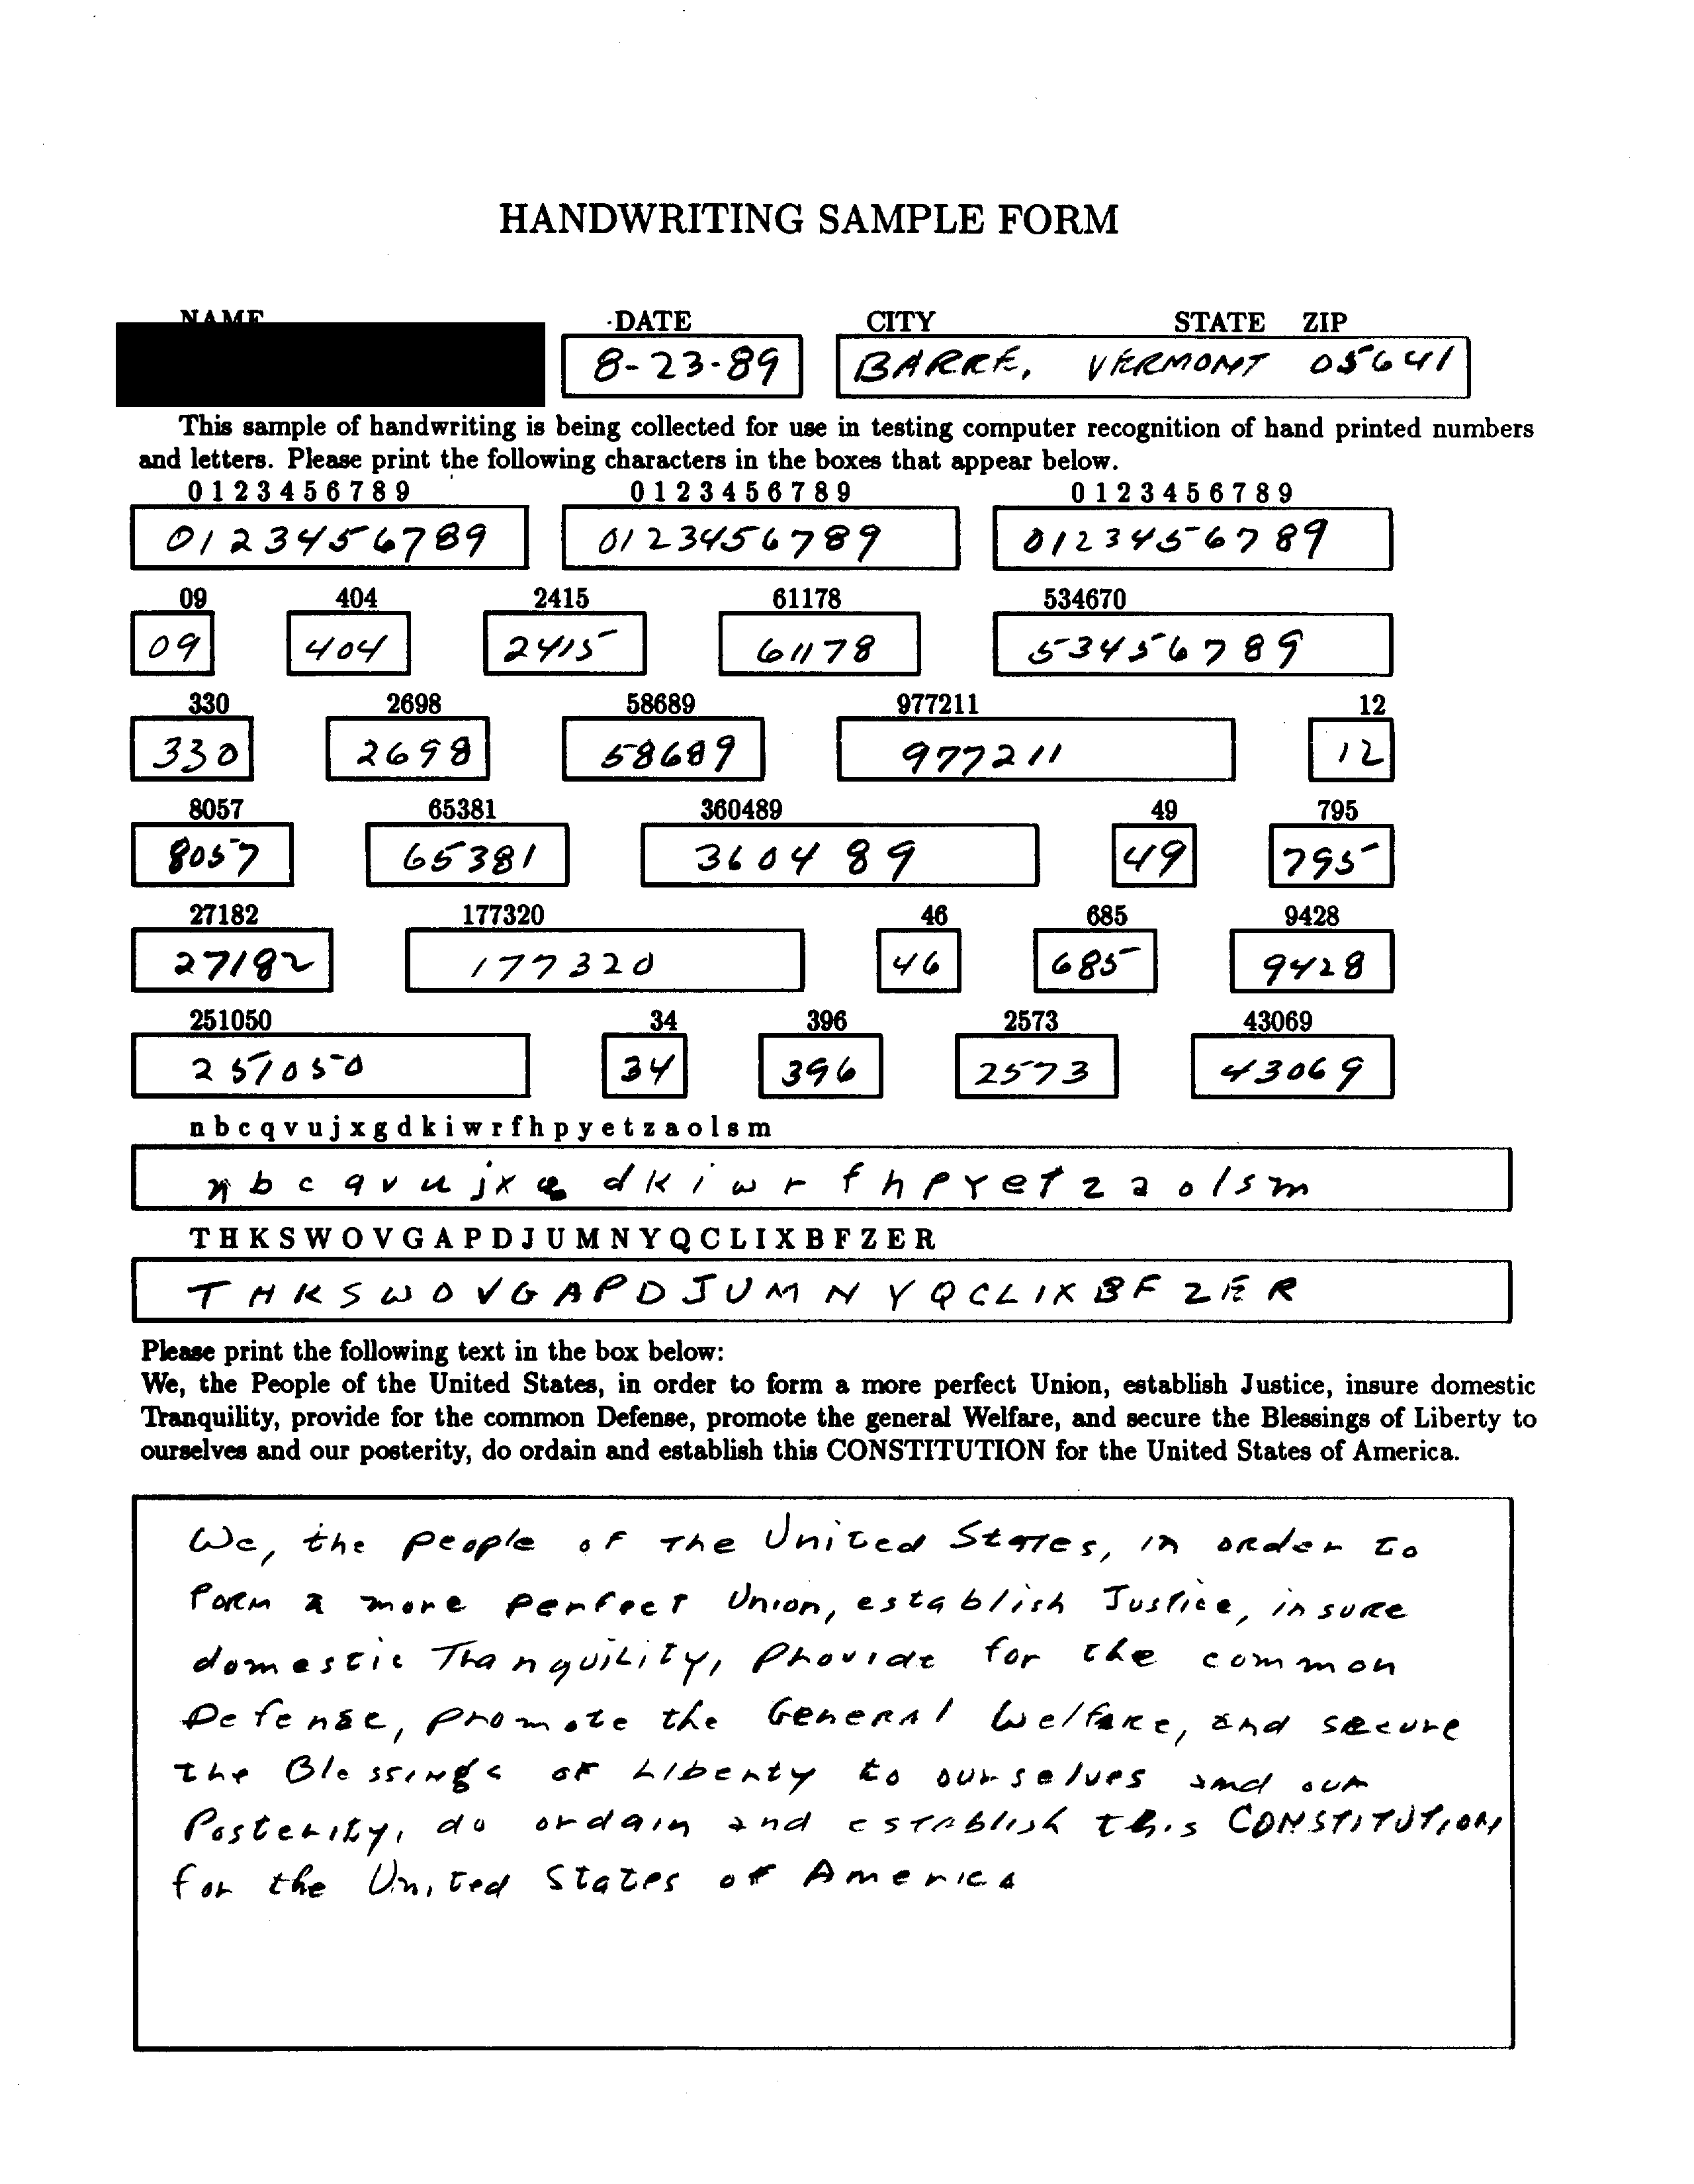 HANDWRITING SAMPLE FORM
NAME DATE CITY STATE ZIP
8-23-89 BARRE, VERMONT 05641
This sample of handwriting is being collected for use in testing computer recognition of hand printed numbers
and letters. Please print the following characters in the boxes that appear below.
0 1 2 3 4 5 6 7 8 9 0 1 2 3 4 5 6 7 8 9 0 1 2 3 4 5 6 7 8 9
0123456789 0123456789 0123456789
09 404 2415 61178 534670
09 404 2415 61178 53456789
330 2698 58689 977211 12
330 2698 58689 977211 12
8057 65381 360489 49 795
8057 65381 360489 49 795
27182 177320 46 685 9428
27182 177320 46 685 9428
251050 34 396 2573 43069
251050 34 396 2573 43069
n b c q v u j x g d k i w r f h p y e t z a o l s m
n b c q v u j x g d k i w r f h p y e t z a o l s m
T H K S W O V G A P D J U M N Y Q C L I X B F Z E R
T H K S W O V G A P D J U M N Y Q C L I X B F Z E R
Please print the following text in the box below:
We, the People of the United States, in order to form a more perfect Union, establish Justice, insure domestic
Tranquility, provide for the common Defense, promote the general Welfare, and secure the Blessings of Liberty to
ourselves and our posterity, do ordain and establish this CONSTITUTION for the United States of America.
We, the people of the United States, in order to
form a more perfect Union, establish Justice, insure
domestic Tranquility, provide for the common
Defense, promote the General Welfare, and secure
the Blessings of Liberty to ourselves and our
Posterity, do ordain and establish this CONSTITUTION
for the United States of America